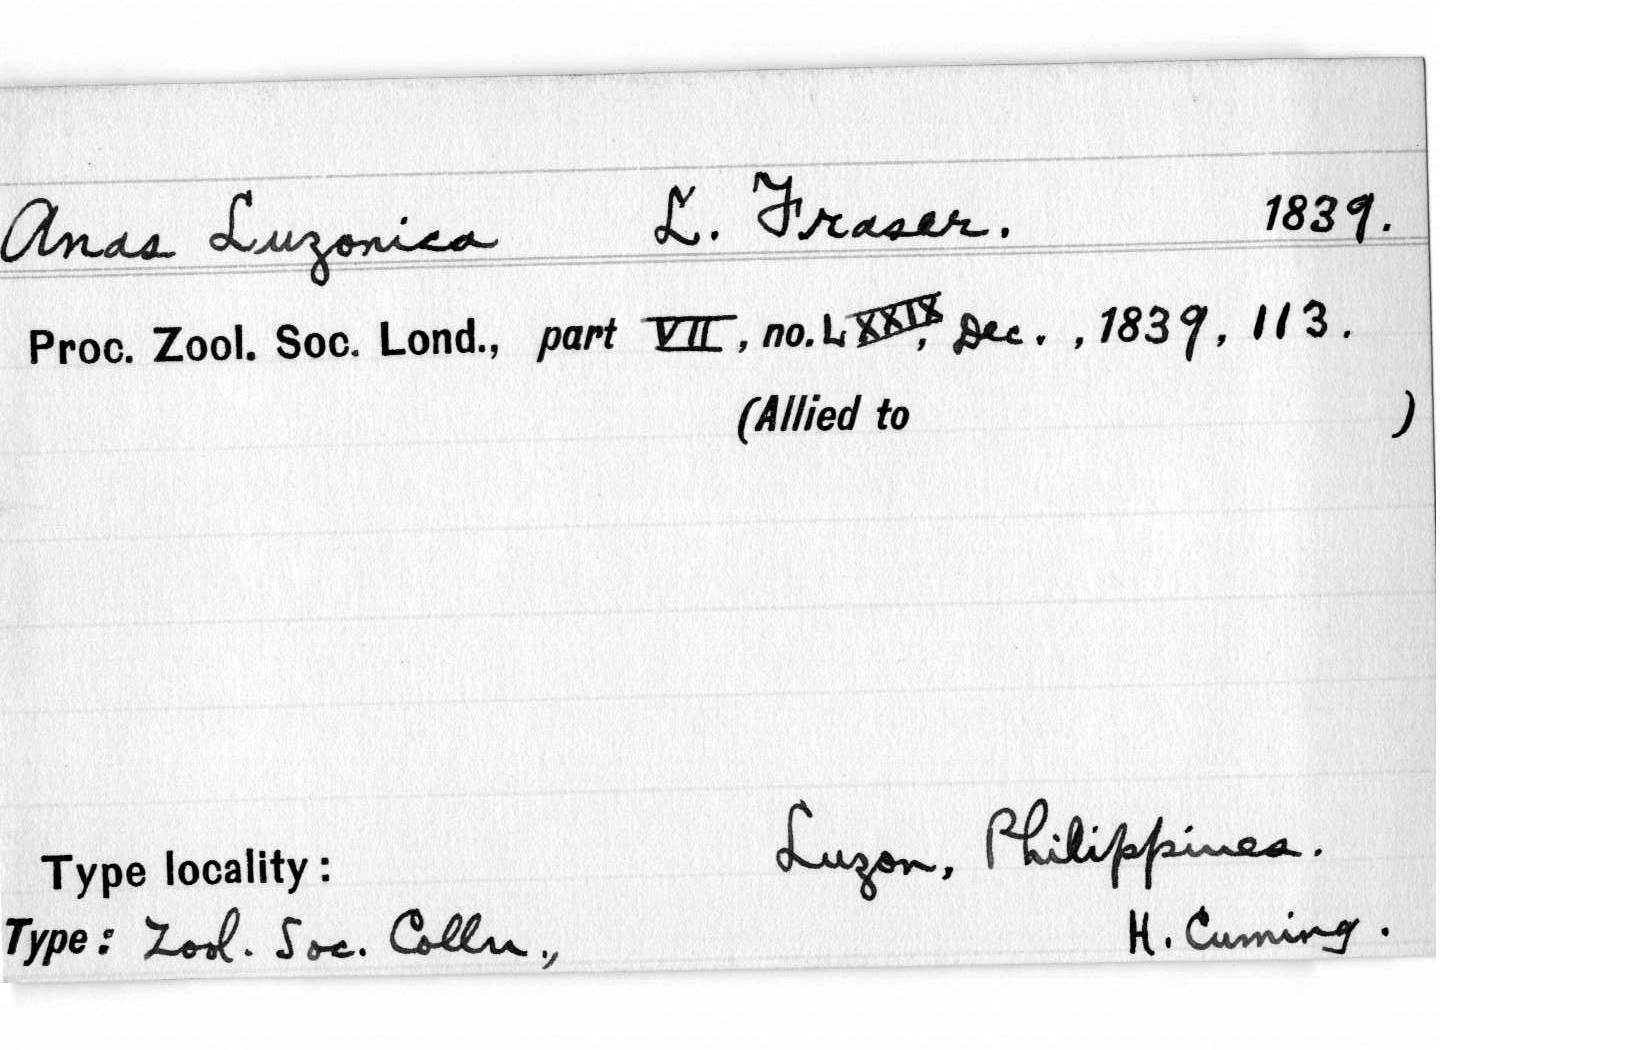 Anas Luzonica L. Fraser. 1839.
Proc. Zool. Soc. Lond., part VII, no. LXXXIX, Dec., 1839, 113.
(Allied to )
Type locality: Luzon, Philippines.
Type: Zool. Soc. Colln., H. Cuming.